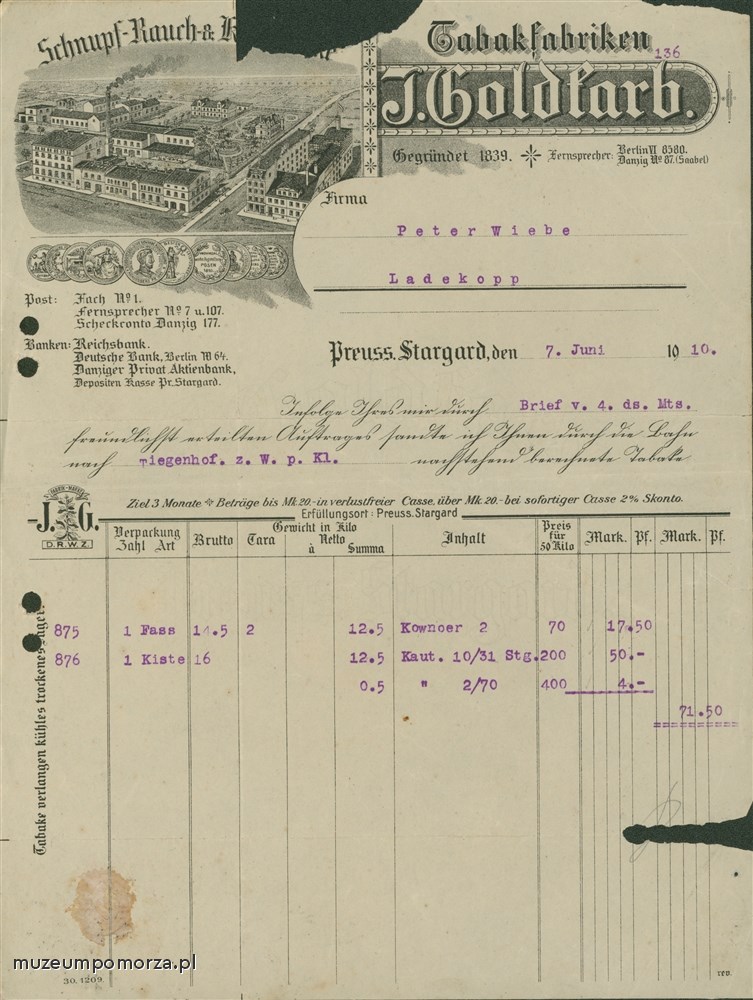 Schnupf-Rauch-&
Tabakfabriken
136
J. Goldfarb.
Gegründet 1839.
Fernsprecher: Berlin VI 8580.
Danzig Nº 87. (Saabel)
Firma
Peter Wiebe
Ladekopp
Post: Fach Nº 1.
Fernsprecher Nº 7 u. 107.
Scheckronto Danzig 177.
Banken: Reichsbank.
Deutsche Bank, Berlin W 64.
Danziger Privat Aktienbank,
Depositen Kasse Pr. Stargard.
Preuss. Stargard, den 7. Juni 1910.
Infolge Ihres mir durch Brief v. 4. ds. Mts.
freundlichst erteilten Auftrages sandte ich Ihnen durch die Bahn
nach Tiegenhof. z. W. p. Kl. nachstehend berechnete Tabake
FABRIK-MARKE
J. G.
D.R.W.Z.
Ziel 3 Monate Beträge bis Mk. 20.- in verlustfreier Casse, über Mk. 20.- bei sofortiger Casse 2% Skonto.
Erfüllungsort: Preuss. Stargard
Verpackung Zahl Art
Brutto
Gewicht in Kilo
Tara
Netto à Summa
Inhalt
Preis für 50 Kilo
Mark. Pf. Mark. Pf.
875 1 Fass 14.5 2 12.5 Kownoer 2 70 17.50
876 1 Kiste 16 12.5 Kaut. 10/31 Stg. 200 50.-
0.5 " 2/70 400 4.-
71.50
Tabake verlangen kühles trockenes Lager.
muzeumpomorza.pl
30. 1209.
rev.